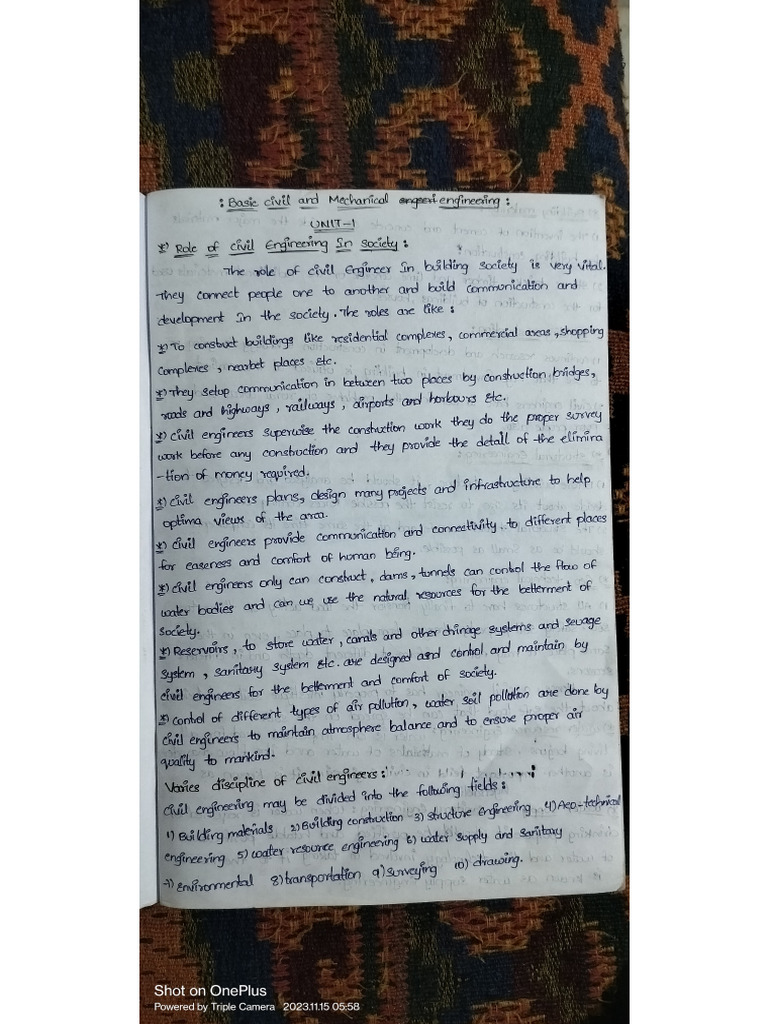 : Basic civil and Mechanical engineering :
UNIT-1
*) Role of civil Engineering In society :
The role of civil Engineer In building society is very vital.
They connect people one to another and build communication and
development In the society. The roles are like :
*) To construct buildings like residential complexes, commercial areas, shopping
complexes, nearbet places etc.
*) They setup communication in between two places by construction, bridges,
roads and highways, railways, airports and horbours etc.
*) civil engineers superwise the constuction work they do the proper survey
work before any consbruction and they provide the detail of the elimina
-tion of money required.
*) civil engineers plans, design many projects and infrastructure to help
optima views of the area.
*) civil engineers provide communication and connectivity to different places
for easeness and comfort of human being.
*) civil engineers only can construct, dams, tunnels can control the flow of
water bodies and can we use the natural resources for the betterment of
society.
*) Reservoirs, to store water, canals and other drinage systems and sewage
system, sanitary system etc. are designed and control and maintain by
civil engineers for the betterment and comfort of society.
*) control of different types of air pollution, water soil pollution are done by
civil engineers to maintain atmosphere balance and to ensure proper air
quality to mankind.
Varies discipline of civil engineers :
civil engineering may be divided into the following fields :
1) Building materials 2) Building construction 3) structure engineering 4) Aeo-technical
engineering 5) water resource engineering 6) water supply and sanitary
7) Environmental 8) transportation 9) surveying 10) drawing.
Shot on OnePlus
Powered by Triple Camera 2023.11.15 05:58